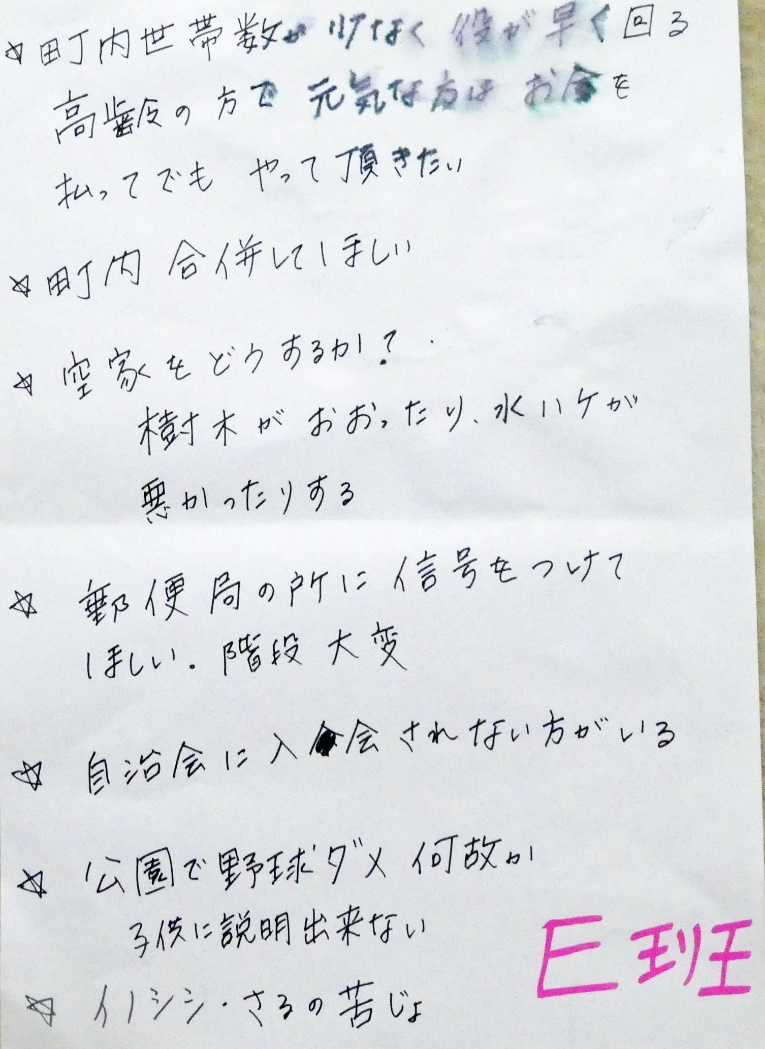 ☆町内世帯数が少なく 役が早く回る
高齢の方で 元気な方は お金を
払ってでも やって頂きたい
☆町内 合併してほしい
☆空家をどうするか?
樹木が おおったり、水ハケが
悪かったりする
☆郵便局の所に 信号をつけて
ほしい。階段 大変
☆自治会に入会されない方がいる
☆公園で野球ダメ 何故か
子供に説明出来ない
☆イノシシ・さるの苦じょ
E班